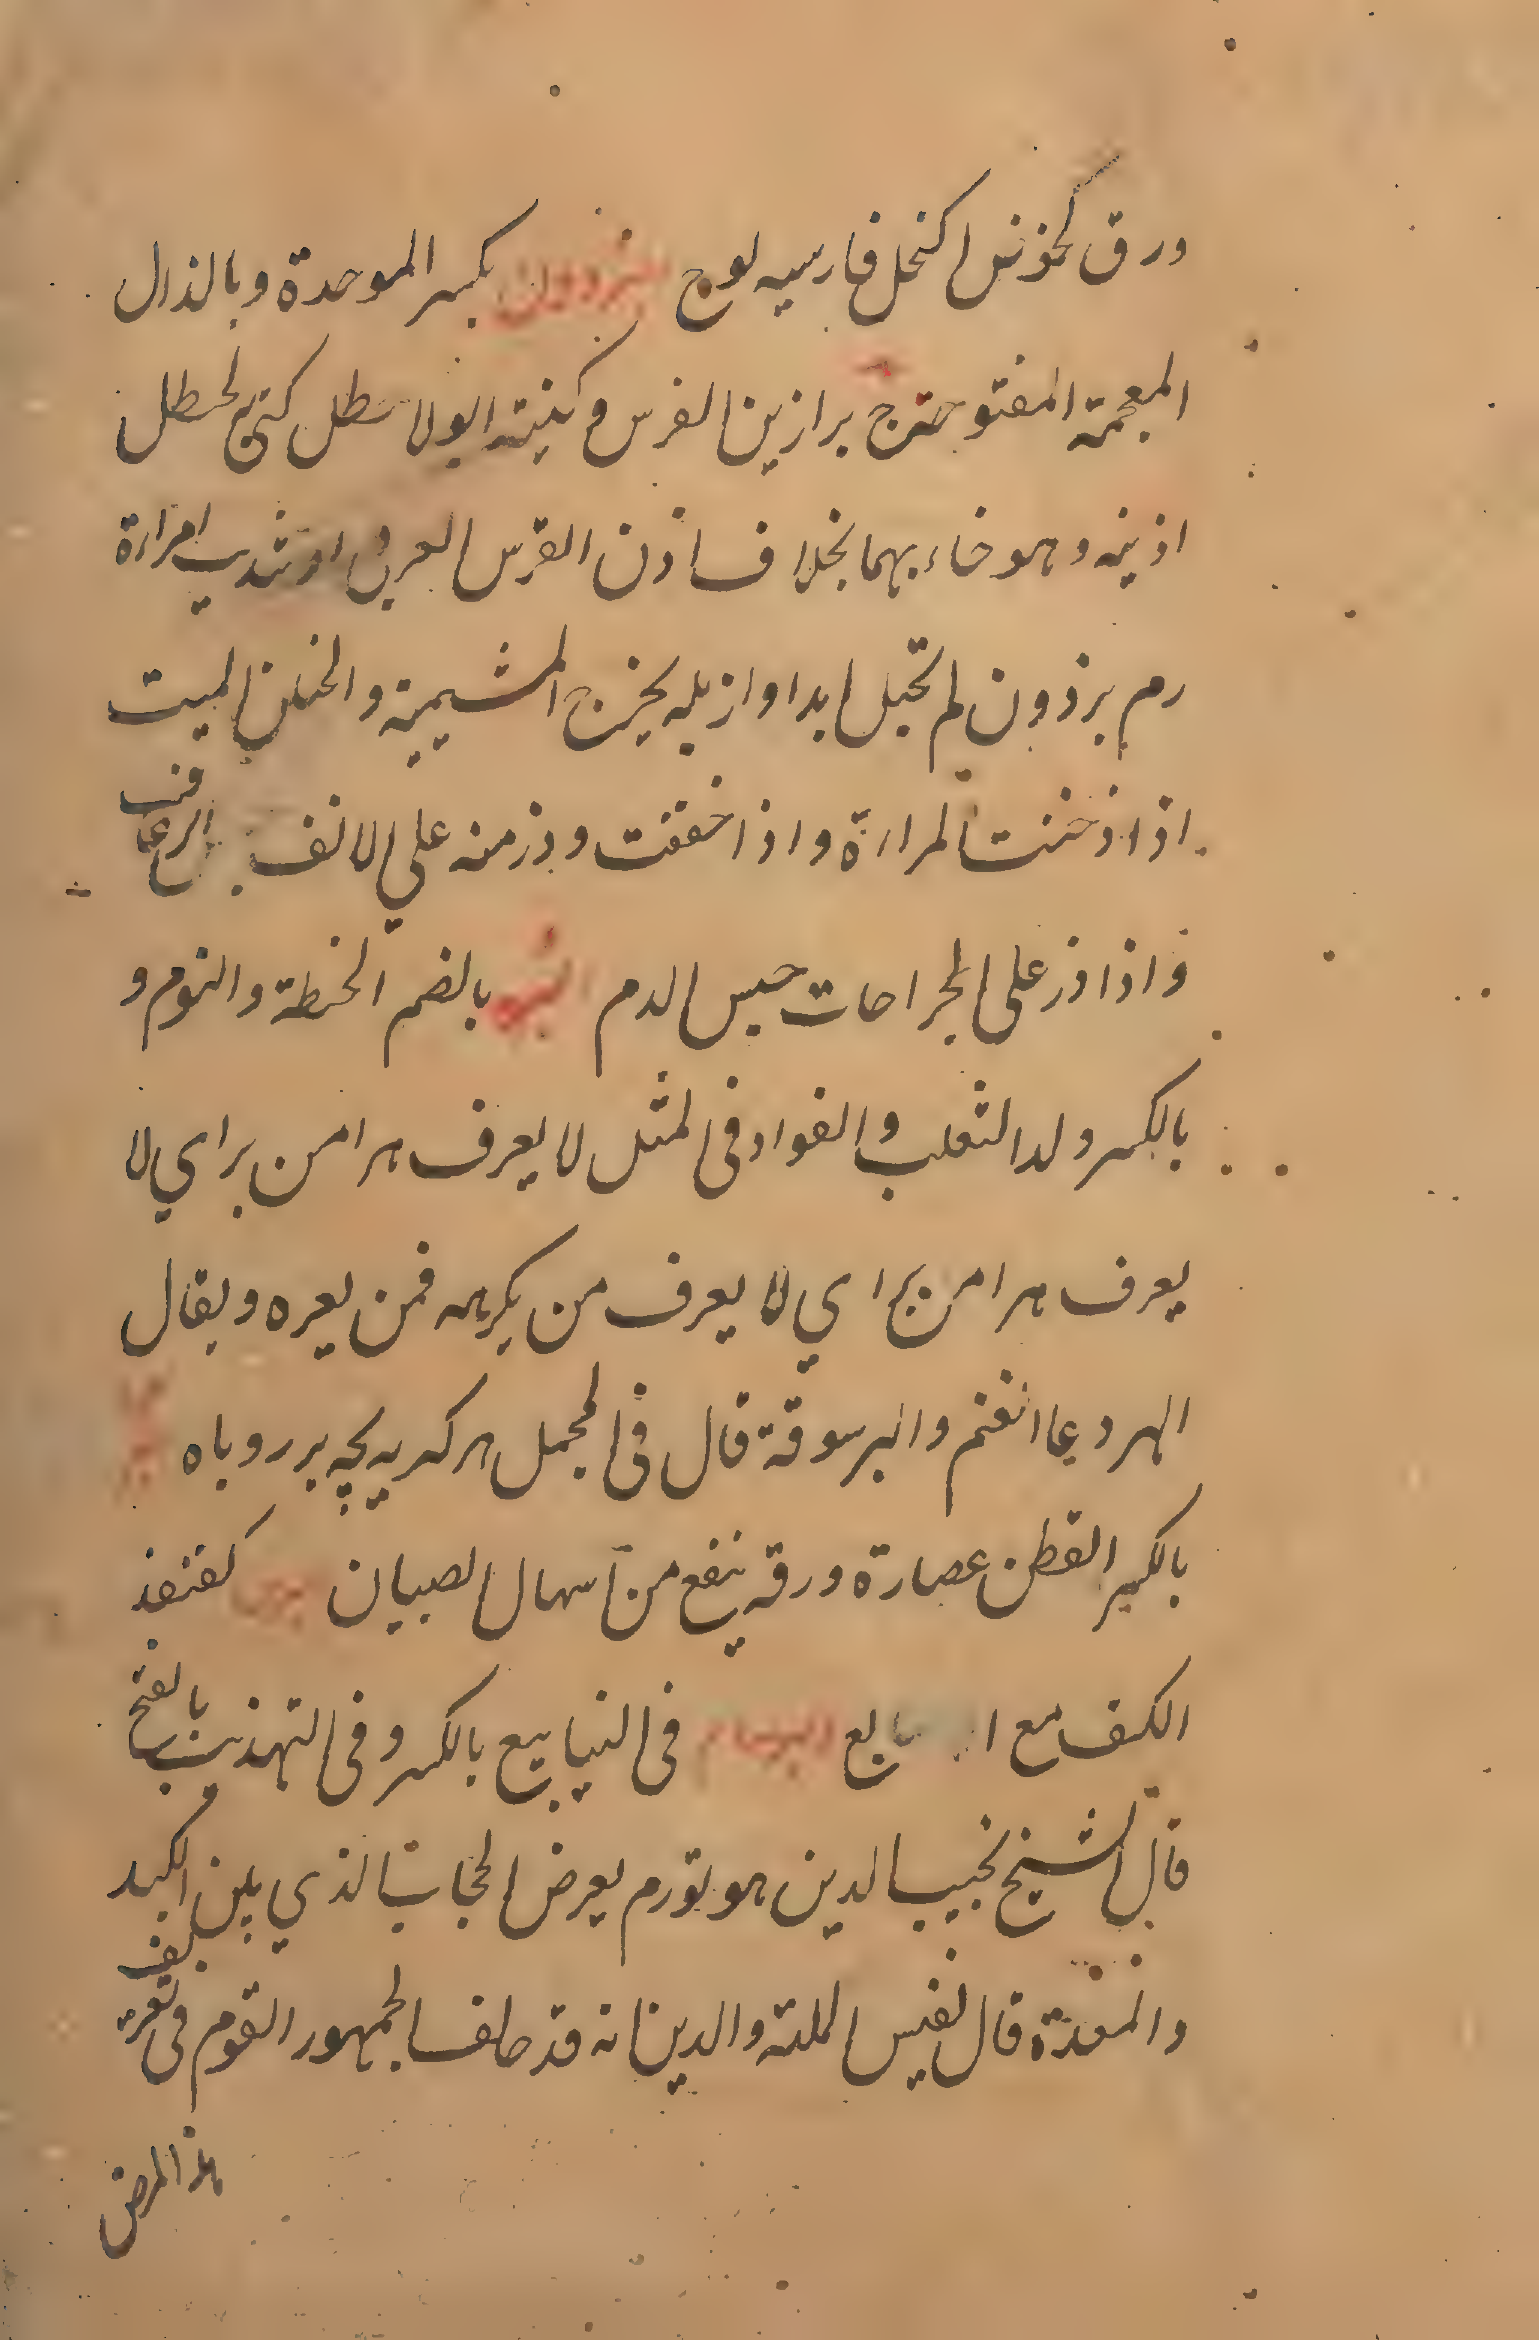 ورق كخوص النخل فارسيه لوج برذون بكسر الموحدة وبالذال
المعجمة المفتوحة ج براذين الفرس وكنيته ابو الاخطل كنى لخطل
اذنيه وهو خاء بهما بخلاف اذن الفرس العربى اذ شربت امراءة
دم برذون لم تحبل ابدا وازبله يخرج المشيمة والجنين الميت
اذا دخنت المراءة واذا خففت وذر منه على الانف الرعاف
واذا ذر على الجراحات حبس الدم البر بالضم الحنطة والنوم و
بالكسر ولد الثعلب والفواد فى المثل لا يعرف هرا من براي لا
يعرف هرا من براي لا يعرف من يكرهه فمن يعره ويقال
الهر دعا الغنم والبر سوقة قال فى المجمل هر كربه بچه بر روباه
بالكسر القطن عصارة ورقه ينفع من اسهال الصبيان برثن كقنفذ
الكف مع الاصابع البرسام فى الينابيع بالكسر وفى التهذيب بالفتح
قال الشيخ نجيب الدين هو تورم يعرض الحجاب الذي بين الكبد
والمعدة قال نفيس الملة والدين انه قد خالف الجمهور القوم فى تعريف
هذا المرض